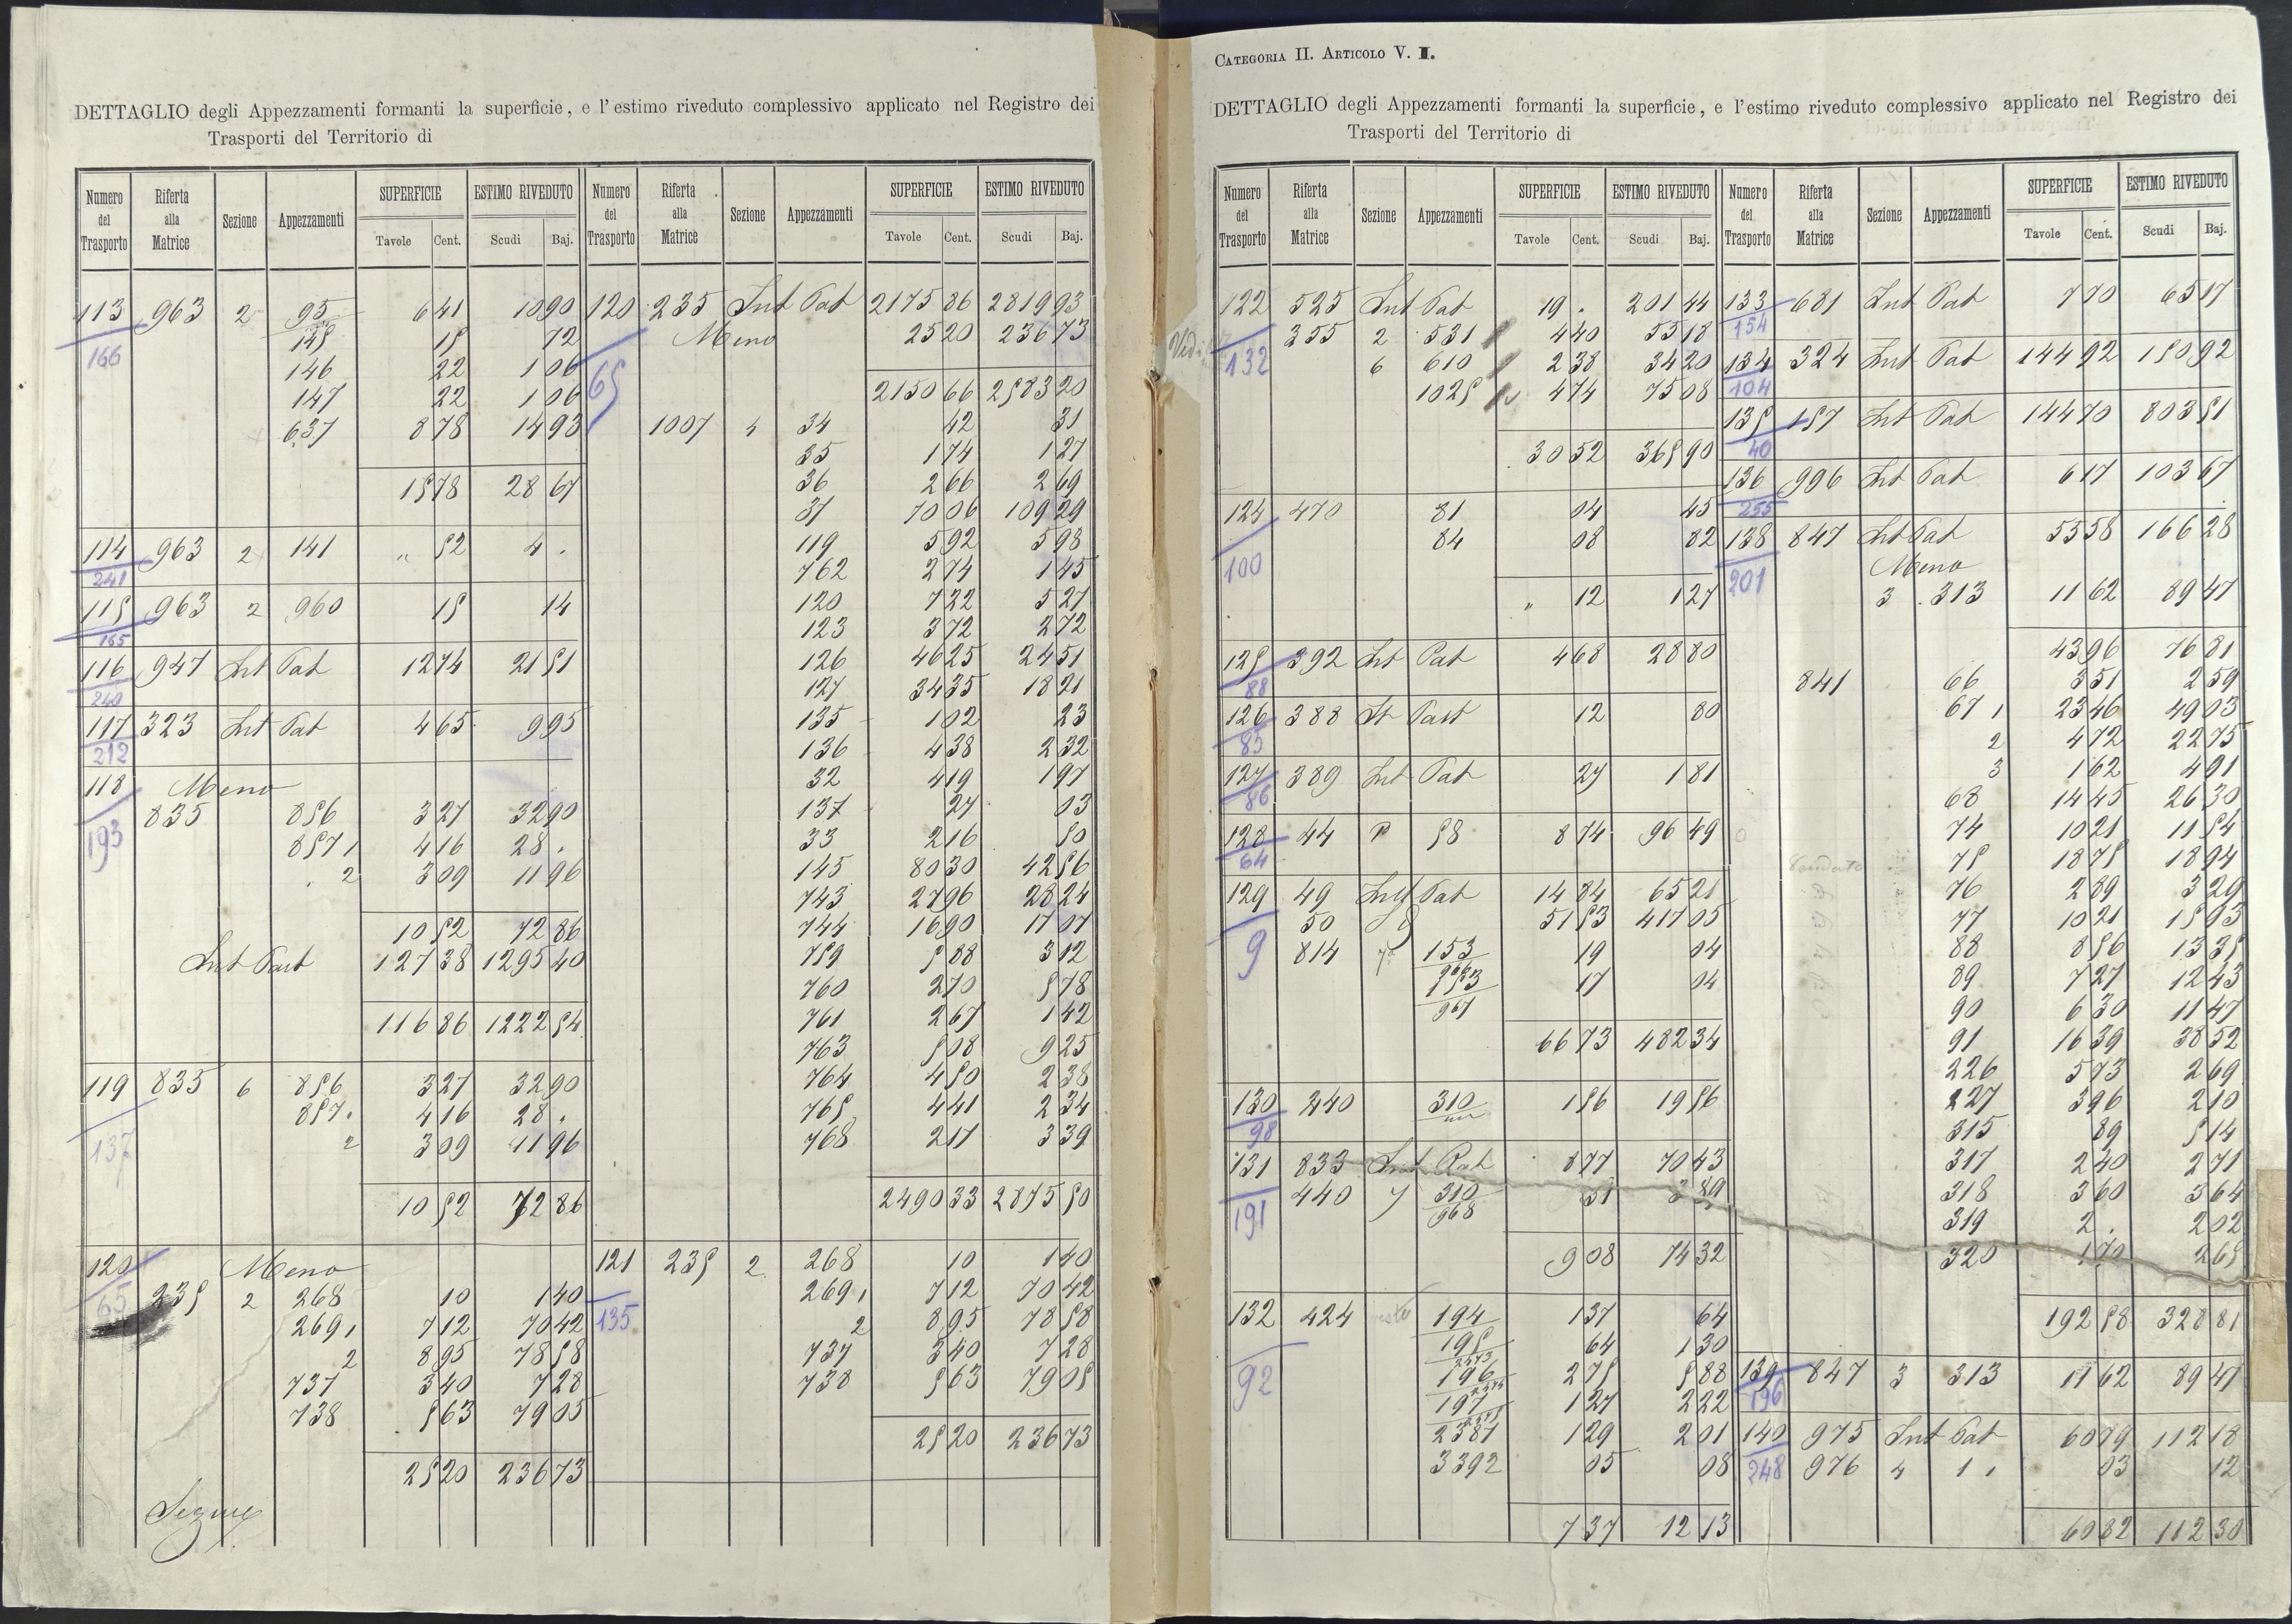 DETTAGLIO degli Appezzamenti formanti la superficie, e l'estimo riveduto complessivo applicato nel Registro dei
Trasporti del Territorio di
Numero del Trasporto Riferta alla Matrice Sezione Appezzamenti SUPERFICIE Tavole Cent. ESTIMO RIVEDUTO Scudi Baj.
113 963 2 95 6 41 10 90
166 145 15 72
146 22 1 06
147 22 1 06
637 8 78 14 93
15 78 28 67
114 963 2 141 " 52 4 .
241
115 963 2 960 15 14
165
116 947 Int Pat 12 74 21 51
240
117 323 Int Pat 4 65 9 95
212
118 Meno
835 856 3 27 32 90
193 857 1 4 16 28 .
2 3 09 11 96
10 52 72 86
Int Pat 127 38 1295 40
116 86 1222 54
119 835 6 856 3 27 32 90
857 1 4 16 28 .
137 2 3 09 11 96
10 52 72 86
120 Meno
65 235 2 268 10 1 40
269 1 7 12 70 42
2 8 95 78 58
737 3 40 7 28
738 5 63 79 05
25 20 236 73
Segue
Numero del Trasporto Riferta alla Matrice Sezione Appezzamenti SUPERFICIE Tavole Cent. ESTIMO RIVEDUTO Scudi Baj.
120 235 Int Pat 2175 86 2819 93
Meno 25 20 236 73
65 2150 66 2583 20
1007 4 34 42 31
35 1 74 1 27
36 2 66 2 69
37 70 06 109 29
119 5 92 5 98
762 2 74 1 45
120 7 22 5 27
123 3 72 2 72
126 46 25 24 51
127 34 35 18 21
135 1 02 23
136 4 38 2 32
32 4 19 1 97
137 27 03
33 2 16 50
145 80 30 42 56
743 27 96 28 24
744 16 90 17 07
759 5 88 3 12
760 2 70 5 78
761 2 67 1 42
763 5 08 9 25
764 4 50 2 38
765 4 41 2 34
768 2 17 3 39
2490 33 2875 50
121 235 2 268 10 1 40
269 1 7 12 70 42
135 2 8 95 78 58
737 3 40 7 28
738 5 63 79 05
25 20 236 73
CATEGORIA II. ARTICOLO V. I.
DETTAGLIO degli Appezzamenti formanti la superficie, e l'estimo riveduto complessivo applicato nel Registro dei
Trasporti del Territorio di
Numero del Trasporto Riferta alla Matrice Sezione Appezzamenti SUPERFICIE Tavole Cent. ESTIMO RIVEDUTO Scudi Baj.
122 525 Int Pat 19 . 201 44
Vedi 355 2 531 4 40 55 18
132 6 610 2 38 34 20
1025 4 74 75 08
30 52 365 90
124 470 81 04 45
84 08 82
100
" 12 1 27
125 392 Int Pat 4 68 28 80
88
126 388 Int Pat 12 80
85
127 389 Int Pat 27 1 81
86
128 44 P 58 8 74 96 49
64
129 49 Int Pat 14 84 65 21
50 51 53 417 05
9 814 153 19 04
17 04
967
66 73 482 34
130 240 310 1 56 19 56
98
131 833 Int Pat 8 77 70 43
440 7 310 31 3 89
191 968
9 08 74 32
132 424 194 1 37 64
195 64 1 30
92 196 2 75 5 88
197 1 27 2 22
2387 1 29 2 01
3392 05 08
7 37 12 13
Numero del Trasporto Riferta alla Matrice Sezione Appezzamenti SUPERFICIE Tavole Cent. ESTIMO RIVEDUTO Scudi Baj.
133 681 Int Pat 7 70 65 17
154
134 324 Int Pat 144 92 150 92
104
135 157 Int Pat 144 70 803 51
40
136 996 Int Pat 6 17 103 67
255
138 847 Int Pat 55 58 166 28
Meno
201 3 313 11 62 89 47
43 96 76 81
841 66 3 51 2 59
67 1 23 46 49 03
2 4 72 22 75
3 1 62 4 91
68 14 45 26 30
74 10 21 11 54
75 18 75 18 94
76 2 89 3 29
77 10 21 15 93
88 8 56 13 35
89 7 27 12 43
90 6 30 11 47
91 16 39 38 52
226 5 73 2 69
227 3 96 2 10
315 89 5 14
317 2 40 2 71
318 3 60 3 64
319 2 . 2 02
320 1 70 2 65
192 58 328 81
139 847 3 313 11 62 89 47
196
140 975 Int Pat 60 79 112 18
248 976 4 1 1 03 12
60 82 112 30